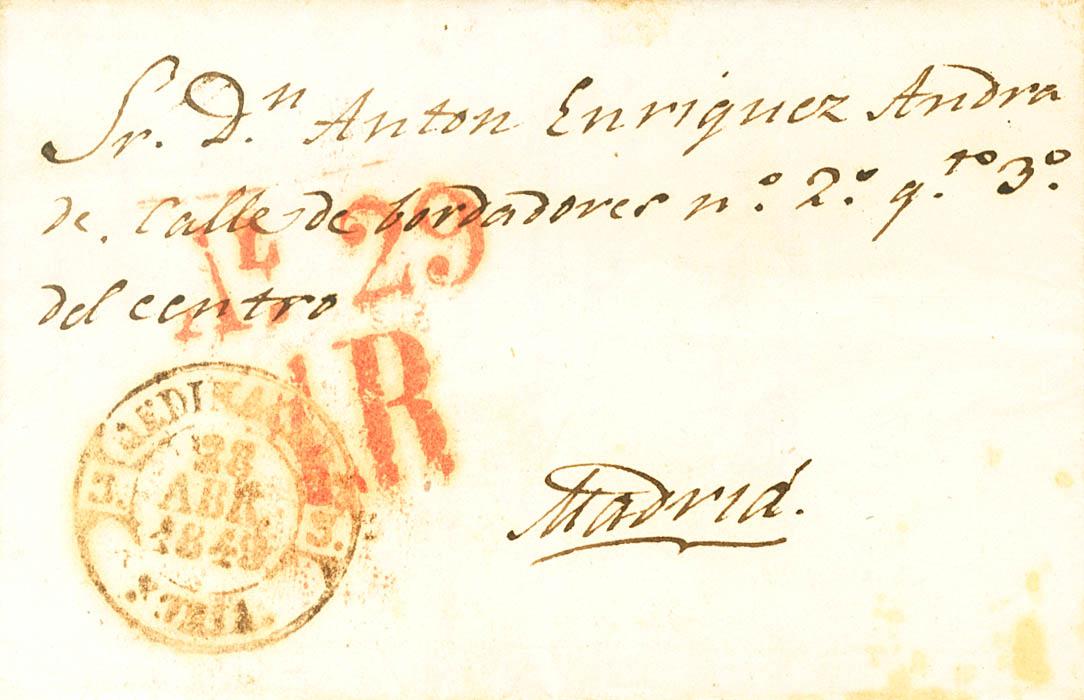 Sr. D.n Anton Enriquez Andra
de. Calle de bordadores n.º 2.º q.to 3.º
del centro
AL 29
1R
28
ABR.
1849
Madrid.